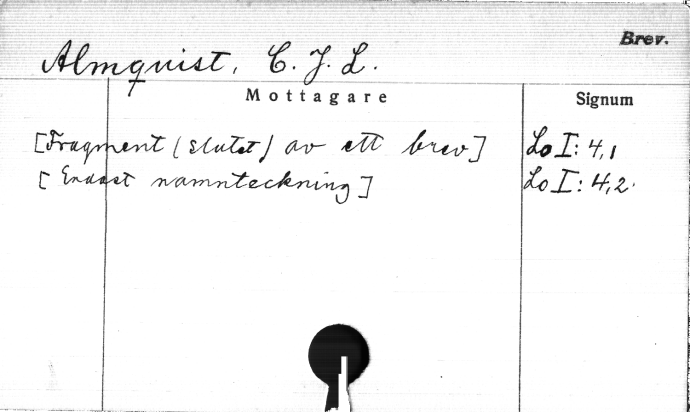 Brev.
Almquist, C. J. L.
Mottagare Signum
[Fragment (slutet) av ett brev] Lo I: 4,1
[Endast namnteckning] Lo I: 4,2.